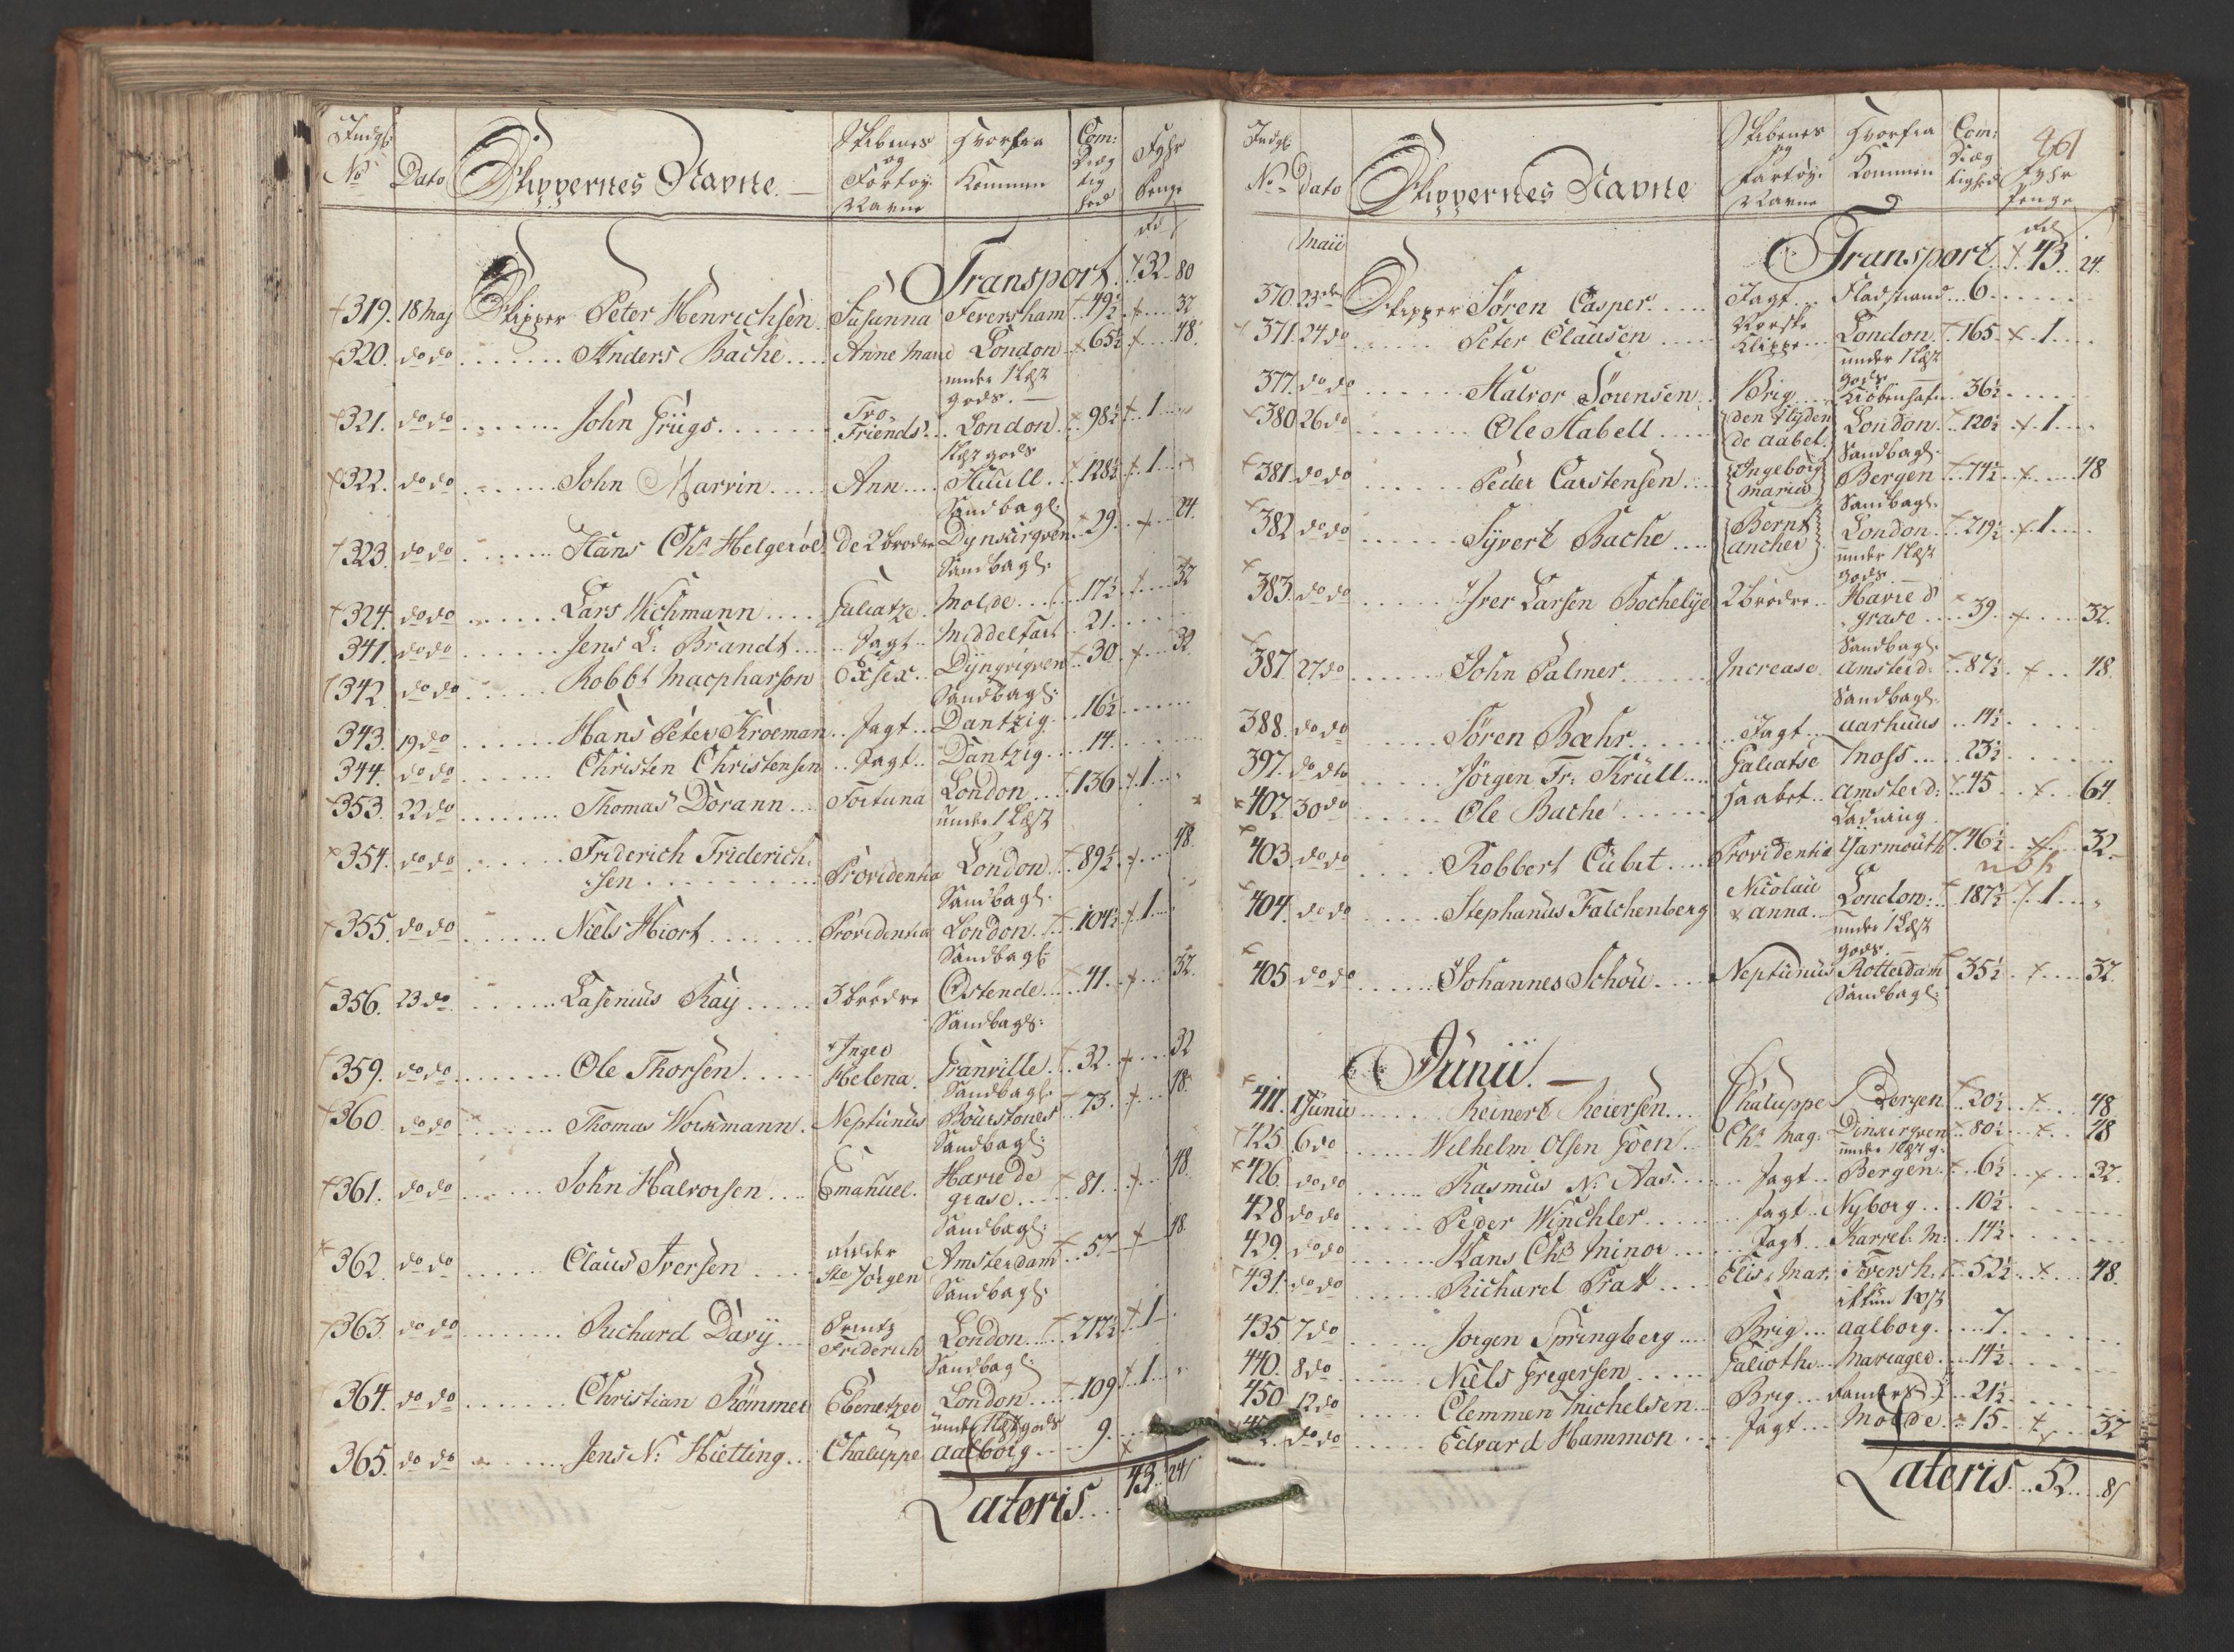 Indgl. No
Dato
Skippernes Navne.
Skibenes og Fartöy. Navne
Hvorfra Kommen
Com: Dræg tighed
Fyhr Penge
rd s
Transport. 32 80
319. 18 Maj Skipper Peter Henrichsen Susanna Feversham 49½ 32
320. do do Anders Bache Anne Marie London 65½ 48
under 1 Læst
gods.
321. do do John Griigs Tvo Friends London 98½ 1
1 Læst gods
322. do do John Marvin Ann Huull 128½ 1
Sandbagl.
323. do do Hans Chr Helgeröe De 2 brødre Dynkirqven 29 24
Sandbagl:
324. do do Lars Wichmann Galeatze Molde 17½ 32
341. do do Jens L: Brandt Jagt Middelfart 21
342. do do Robbt Macpharson Exsex Dynqvirqven 30 32
Sandbagl:
343. 19 do Hans Peter Kroeman Jagt Dantzig 16½
344. do do Christen Christensen Jagt Dantzig 14
353. 22 do Thomas Dorann Fortuna London 136 1
under 1 Læst
354. do do Friderich Friderich-
sen Providentia London 89½ 48
Sandbagl:
355. do do Niels Hiort Providentia London 104½ 1
Sandbagl
356. 23 do Lasenius Kay 3 brødre Ostende 41 32
Sandbagl:
359. do do Ole Thorsen Inger Helena Granville 32 32
Sandbagl:
360. do do Thomas Workmann Neptunus Bourstones 73 48
Sandbagl:
361. do do John Halvorsen Emanuel Havre de grase 81 48
Sandbagl:
362. do do Claus Iversen Ridder Ste Jörgen Amsterdam 57 48
Sandbagl:
363. do do Richard Davy Printz Friderich London 212½ 1
Sandbagl:
364. do do Christian Römmer Ebenetzer London 109 1
under 1 Læst gods
365. do do Jens N: Hietting Chaluppe Aalborg 9
Lateris 43. 24
461
Indgl. No
Dato
Skippernes Navne
Skibenes og Fartöy: Navne
Hvorfra Kommen
Com: Dræg tighed
Fyhr Penge
Maii
rd s
Transport 43. 24.
370. 23 do Skipper Sören Casper Jagt Fladstrand 6
371. 24 do Peter Clausen Norske Klippe London 165 1
under 1 Læst
gods
377. do do Halvor Sörensen Brig Kiöbenhafn 36½
380. 26 do Ole Stabell den Nyden de Aabel London 120½ 1
Sandbagl.
381. do do Peder Carstensen Ingeborg Maria Bergen 74½ 48
Sandbagl.
382. do do Syvert Bache Bernt Ancher London 219½ 1
under 1 Læst
gods.
383. do do Iver Larsen Bochelye 2 brødre Havre d grase 39 32.
Sandbagl.
387. 27 do John Palmer Increase Amsterd: 87½ 48
Sandbagl.
388. do do Sören Bæhr Jagt Aarhuus 14½
397. do dto Jörgen Fr: Krüll Galeatse Moss 23½
402. 30 do Ole Bache Haabet Amsterd: 45 64
Ladning
403. do do Robbert Cubit Providentia Yarmouth 46½ 32
404. do do Stephanus Falchenberg Nicolau & Anna London 187½ 1
under 1 Læst
gods.
405 do do Johannes Schou Neptunus Rotterdam 35½ 32
Sandbagl:
Junii.
411. 1 Junii Reinert Reiersen Chaluppe Bergen 20½ 48
425. 6 do Wilhelm Olsen Goen Chr Mag: Dinkirqven 80½ 48
under 1 Læst g.
426. do do Rasmus N: Aas Jagt Bergen 6½ 32.
428 do do Peder Winchler Jagt Nyborg 10½
429. do do Hans Chr Minor Jagt Karreb: M: 14½
431. do do Richard Pratt Elis: Mar: Feversh. 52½ 48.
435 7 do Jorgen Springberg Brig Aalborg 7
440. 8 do Niels Gregersen Galioth Mariager 14½
450 12 do Clemmen Michelsen Brig Randers 21½
do do Edvard Hammon Jagt Molde 15 32
Lateris 52. 8